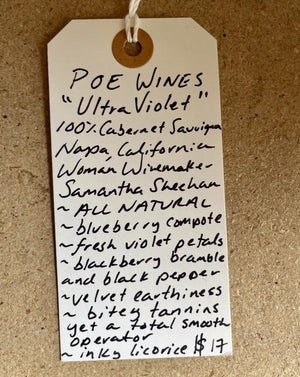 POE WINES
"Ultra Violet"
100% Cabernet Sauvignon
Napa, California
Woman Winemaker
Samantha Sheehan
~ ALL NATURAL
~ blueberry compote
~ fresh violet petals
~ blackberry bramble
and black pepper
~ velvet earthiness
~ bitey tannins
yet a total smooth
operator
~ inky licorice $17